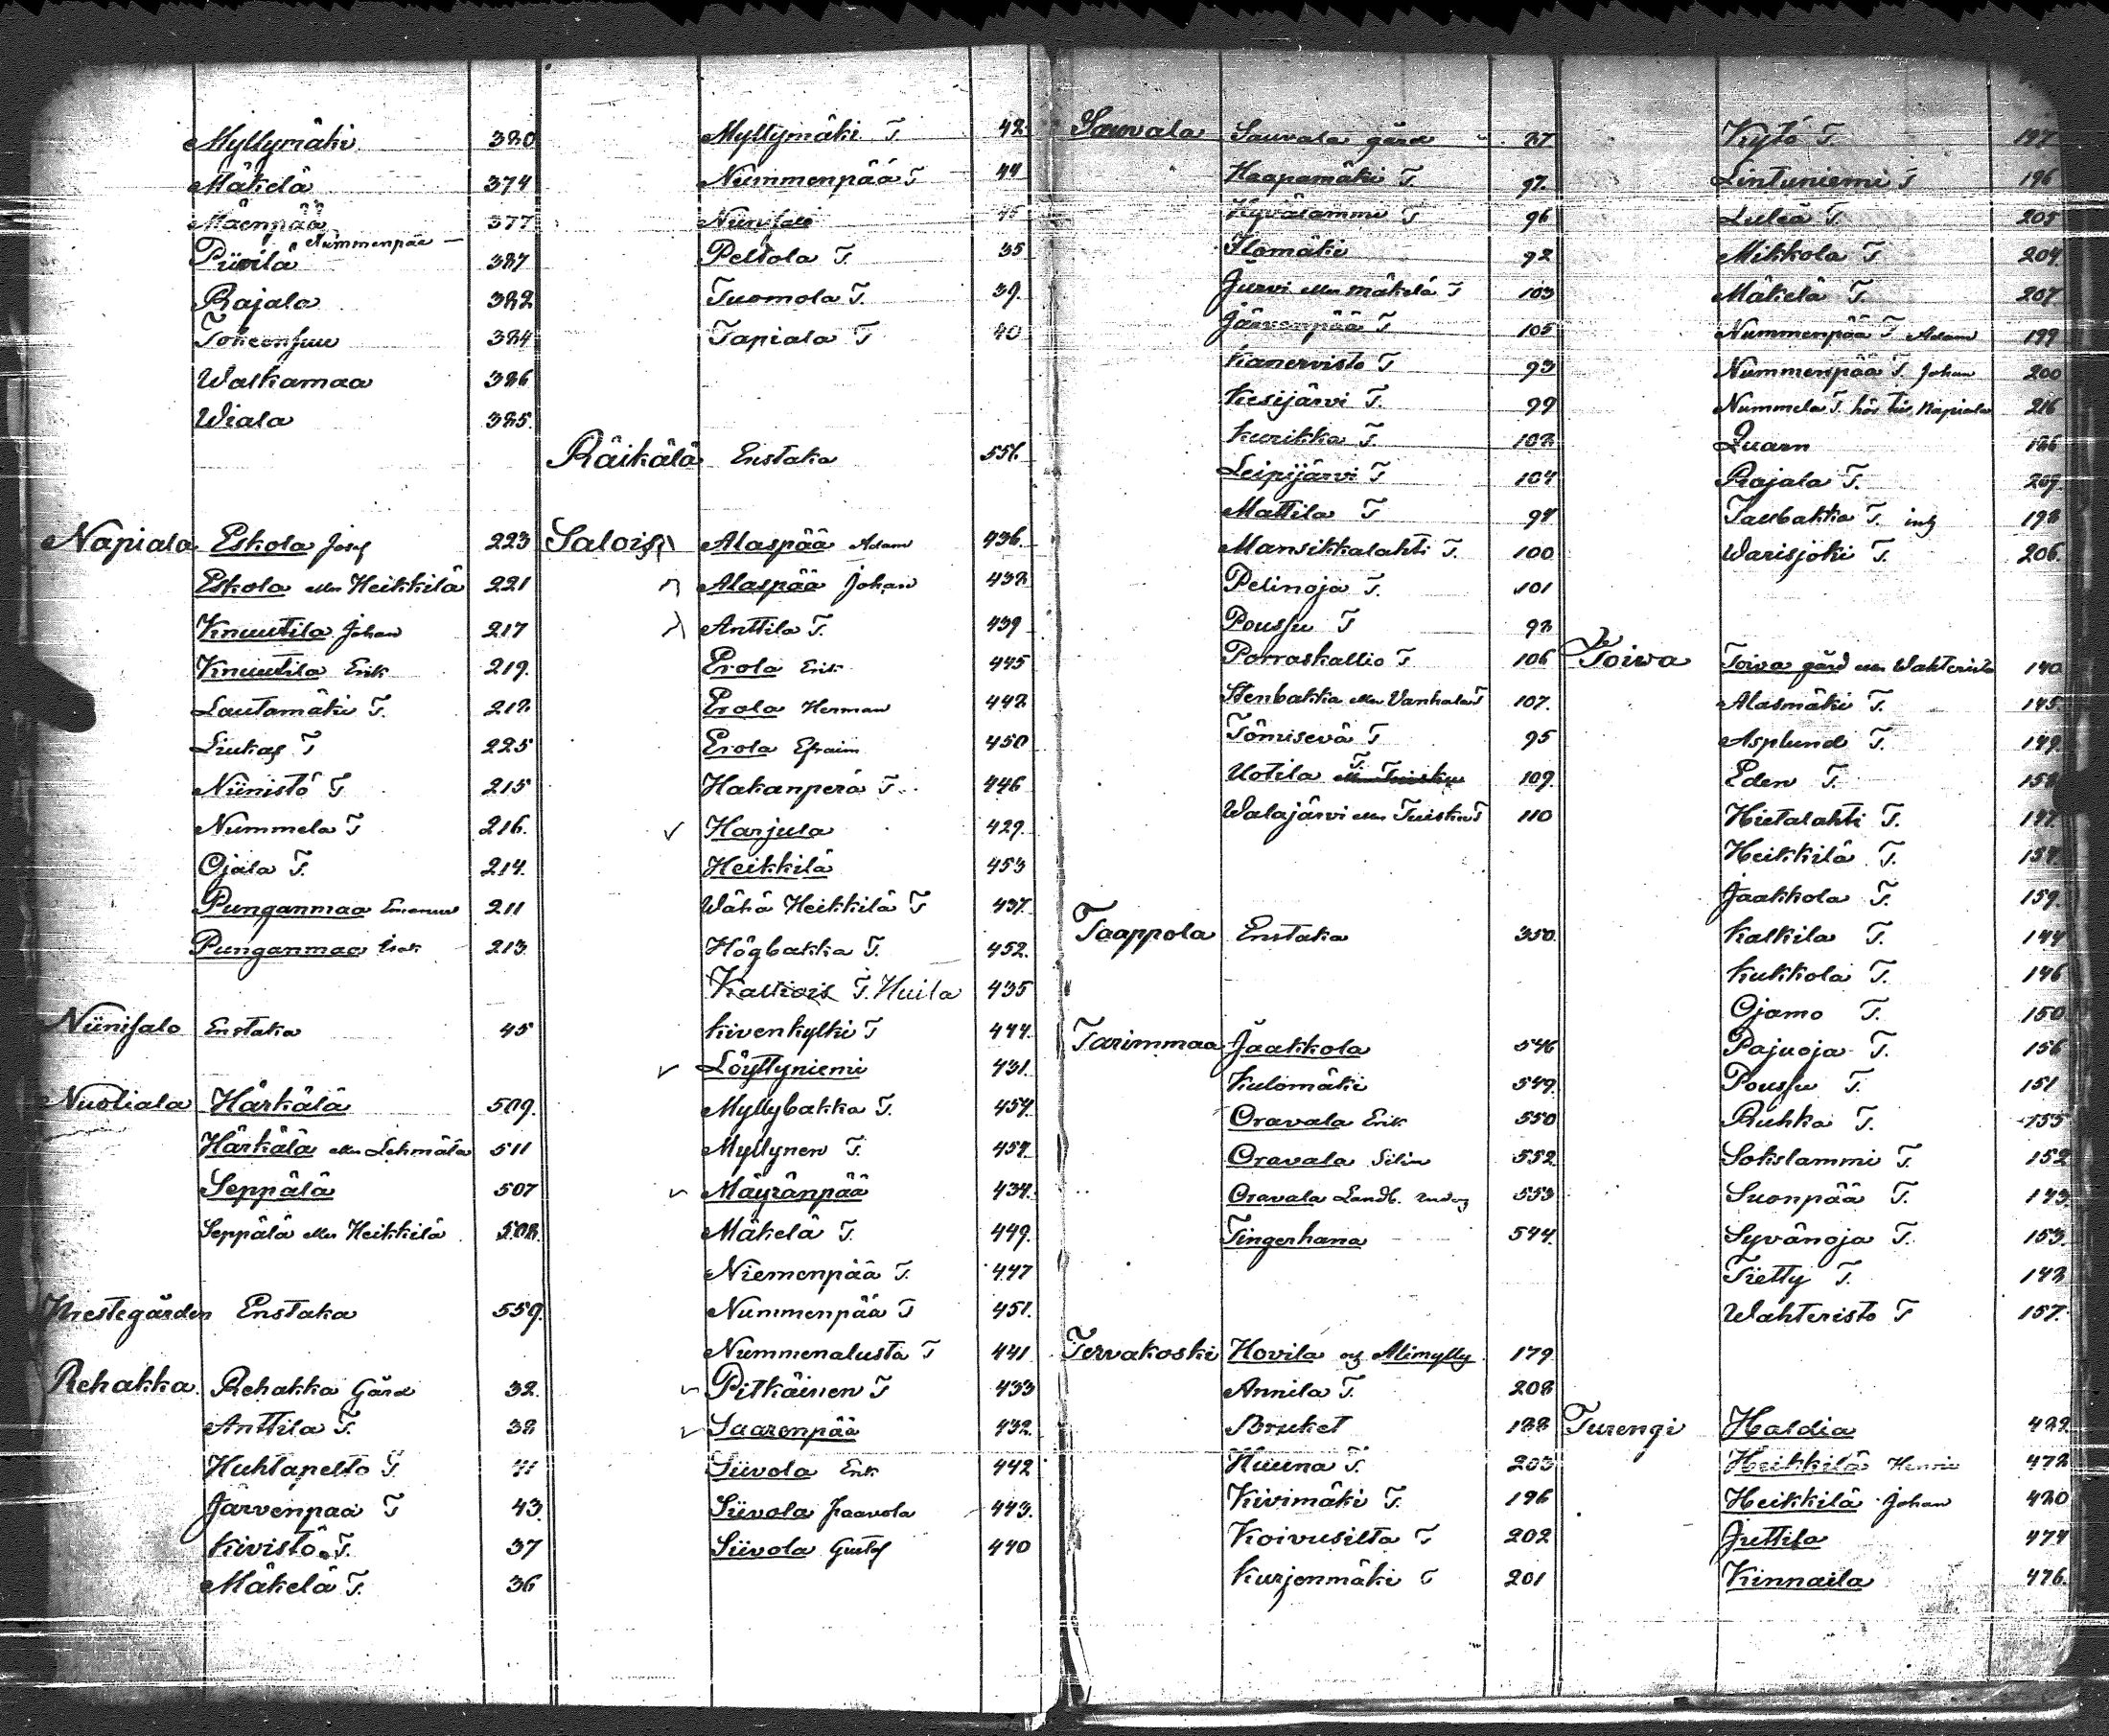 Myllymäki 380
Mäkelä 374
Mäenpää 377
Nummenpää —
Piirila 387
Rajala 382
Tokeensuu 384
Walkamaa 386
Wiala 385.
Napiala Eskola Josef 223
Eskola eller Heikkilä 221
Knuutila Johan 217
Knuutila Erik 219.
Lautamäki T. 218
Liukas T 225
Niinistö T 215
Nummela T 216.
Ojala T. 214.
Punganmaa Emanuel 211
Punganmaa Isak 213
Niinisalo Enstaka 45
Nuoliala Härkälä 509.
Härkälä eller Lehmälä 511
Seppälä 507
Seppälä eller Heikkilä 508.
Prestegården Enstaka 559.
Rehakka Rehakka Gård 32.
Anttila T. 38
Huhtapelto T. 41
Järvenpaa T 43
Kivistö T. 37
Mäkelä T. 36
Myllymäki T. 42
Nummenpää T 44
Niinisalo 45
Peltola T. 35
Tuomola T. 39.
Tapiala T 40
Räikälä Enstaka 556.
Salois Alaspää Adam 436.
Alaspää Johan 438
Anttila T. 439
Erola Erik 445
Erola Herman 448
Erola Efraim 450
Hakanperä T. 446
Harjula 429.
Heikkilä 453
Wähä Heikkilä T 437.
Högbakka T. 452.
Kallois T. Huila 435
Kivenkylki T 444.
Löyttyniemi 431.
Myllybakka T. 454.
Myllynen T. 454.
Mäyränpää 434.
Mäkelä T. 449.
Niemenpää T. 447
Nummenpää T 451.
Nummenalusta T 441
Pitkäinen T 433
Saarenpää 432.
Siivola Erik 442
Siivola Paavola 443.
Siivola Gustaf 440
Sauvala Sauvala gård 87
Haapamäki T. 97.
Hyvälammi T 96
Ilomäki 92
Jurvi eller Mäkelä T 103
Järvenpää T 105
Kanervisto T 93
Kesijärvi T. 99
Kurikka T. 108
Leipijärvi T 104
Mattila T 94
Mansikkalahti T. 100
Pelinoja T. 101
Poussu T 98
Porraskallio T 106
Stenbakka eller Vanhala T 107.
Tömisevä T 95
Uotila T. 109.
Walajärvi eller Tuisku T 110
Taappola Enstaka 350.
Tarimmaa Jaakkola 546
Kulomäki 549.
Oravala Erik 550
Oravala 552.
Oravala Landb. 553
Tingerhana 544.
Tervakoski Hovila och Alimylly 179
Annila T. 208
Bruket 188
Huuna T. 203
Kivimäki T. 196
Koivusilta T 202
Kurjenmäki T 201
Kytö T. 197
Lintuniemi T 196
Luleä T. 205
Mikkola T 204.
Mäkelä T. 207.
Nummenpää T. Adam 199
Nummenpää T. Johan 200
Nummela T. hör till Napiala 216
Quarn 186
Rajala T. 209.
Taubakka T. 198
Warisjoki T. 206.
Toiva Toiva gård eller Wahteristo 140
Alasmäki T. 145.
Asplund T. 149.
Eden T. 158
Hietalahti T. 147.
Heikkilä T. 154.
Jaakkola T. 159.
Kalkila T. 144
Kukkola T. 146
Ojamo T. 150
Pajuoja T. 156
Poussu T. 151
Ruhka T. 155
Sokslammi T. 152
Suonpää T. 143.
Syvänoja T. 153.
Tietty T. 148
Wahteristo T 157.
Turengi Haldia 422
Heikkilä Henric 478
Heikkilä Johan 420
Juttila 474
Kinnaila 476.